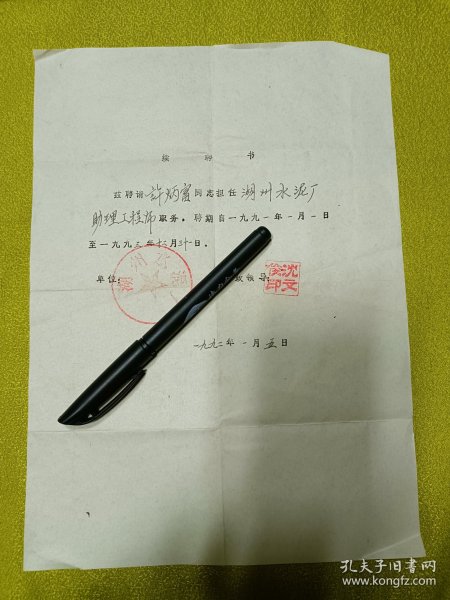 续聘书
兹聘请许炳富同志担任湖州水泥厂
助理工程师职务，聘期自一九九一年一月一日
至一九九三年十二月卅一日。
单位：
政领导：
沈文印
一九九二年一月五日
孔夫子旧书网
www.kongfz.com